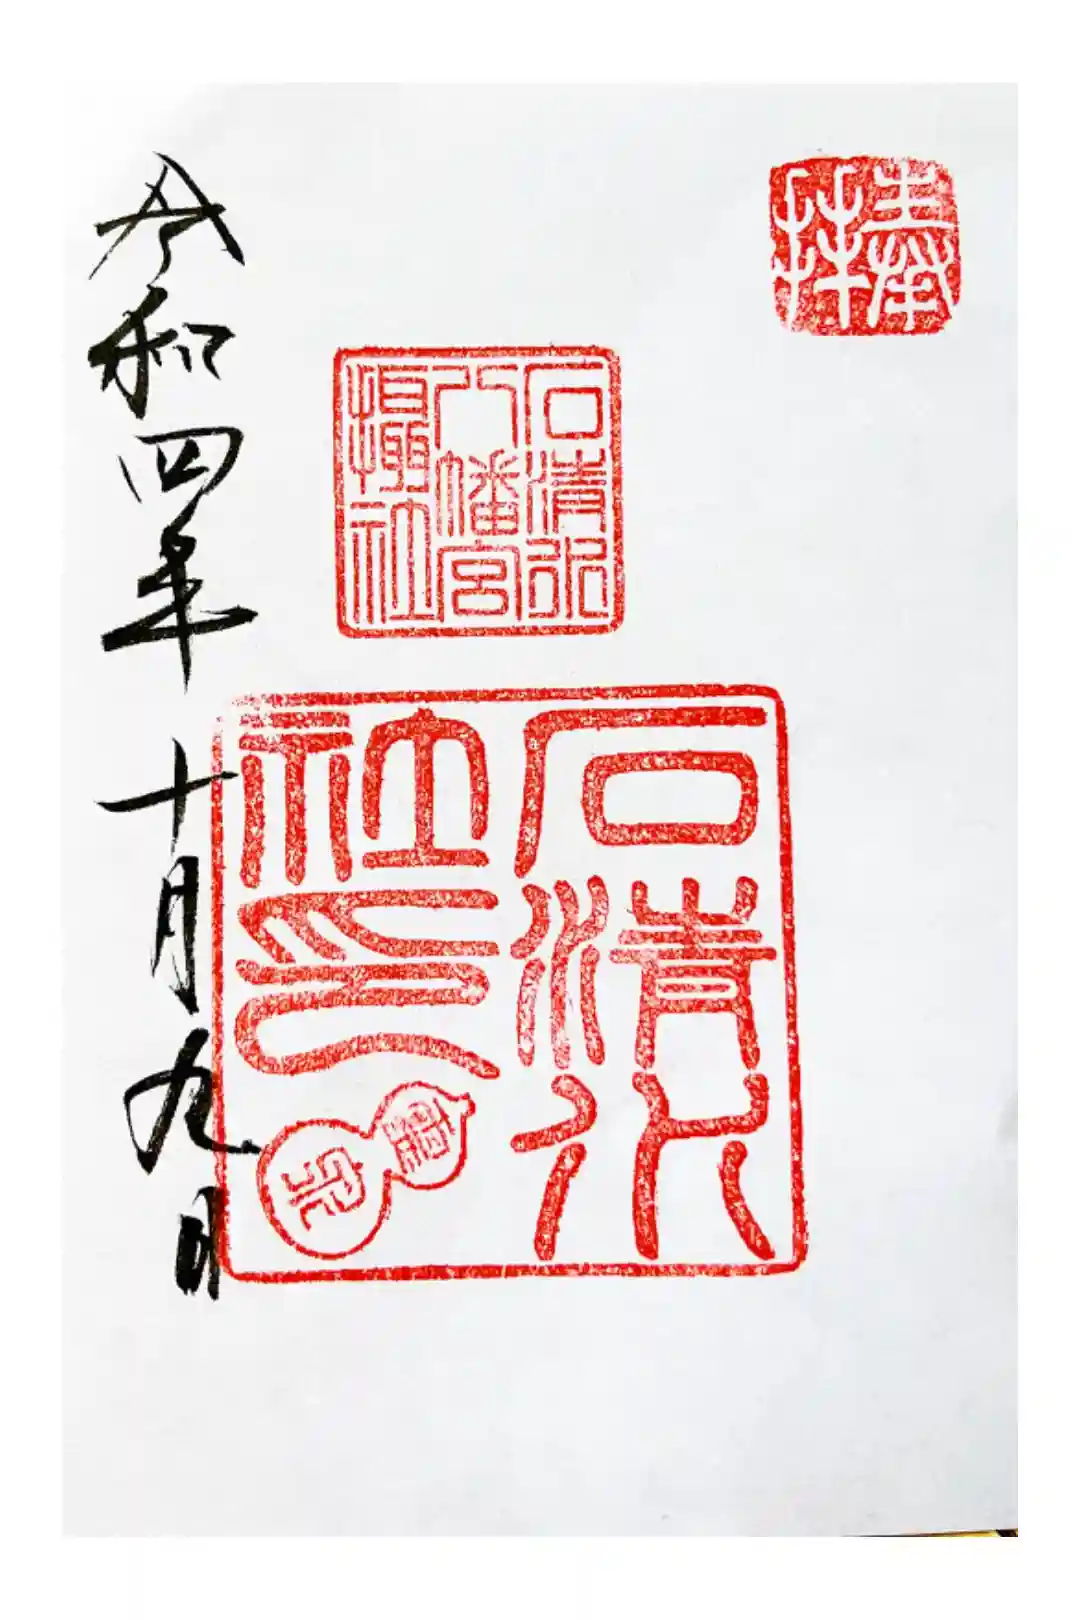 奉拝
石清水
八幡宮
攝社
石清水
社印
霊泉
令和四年十月九日